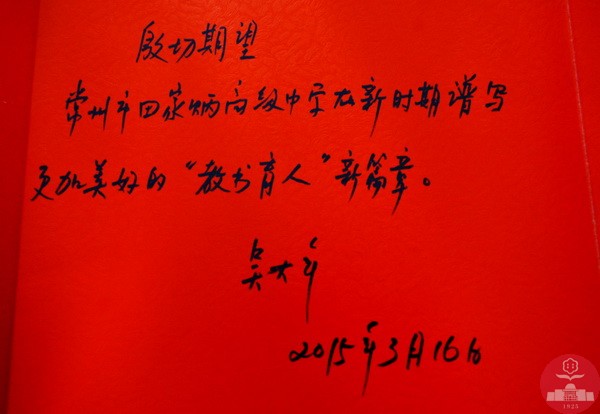 殷切期望
常州市田家炳高级中学在新时期谱写
更加美好的“教书育人”新篇章。
吴大年
2015年3月16日
1925